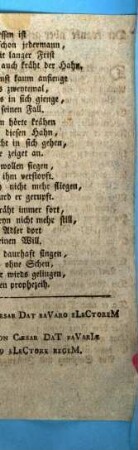 essen ist
schon jedermann,
ie langer Frist
auch kräht der Hahn,
nst kaum anfienge
s zweytemal,
s in sich gienge,
seinen Fall.
n hörte krähen
diesen Hahn,
cht in sich gehen,
e zeiget an.
wollen siegen
ihn verstopft.
nicht mehr fliegen,
ard er gerupft.
räht immer fort,
yn nicht mehr still,
Adler dort
einen Will.
daurhaft singen,
ohne Scheu,
er wirds gelingen,
en prophezeih.
ESAR DAT BAVARO ELECTOREM
ON CÆSAR DAT BAVARIÆ
O ELECTORE REGEM.